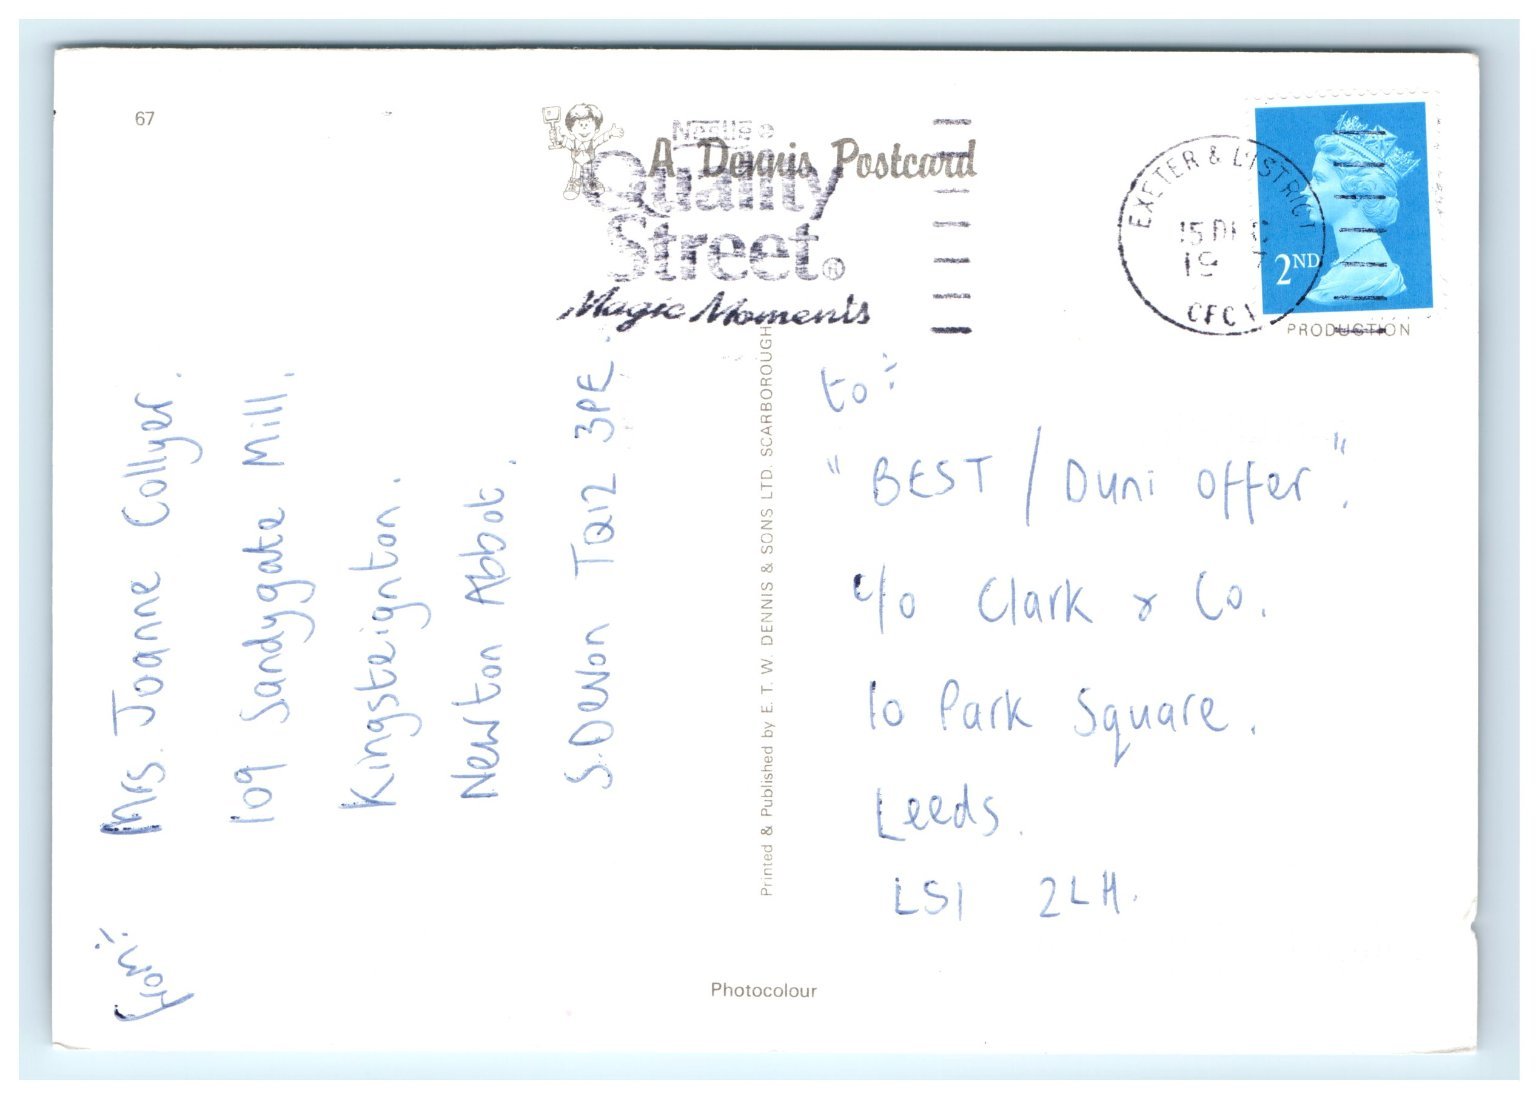 67
A Dennis Postcard
Nestlé
Quality
Street®
Magic Moments
EXETER & DISTRICT
15 DEC
2ND
PRODUCTION
from:-
Mrs. Joanne Collyer.
109 Sandygate Mill.
Kingsteignton.
Newton Abbot.
S. Devon TQ12 3PE.
Printed & Published by E. T. W. DENNIS & SONS LTD. SCARBOROUGH
to:-
"BEST / Duni offer".
c/o Clark & Co.
10 Park Square.
Leeds.
LS1 2LH.
Photocolour